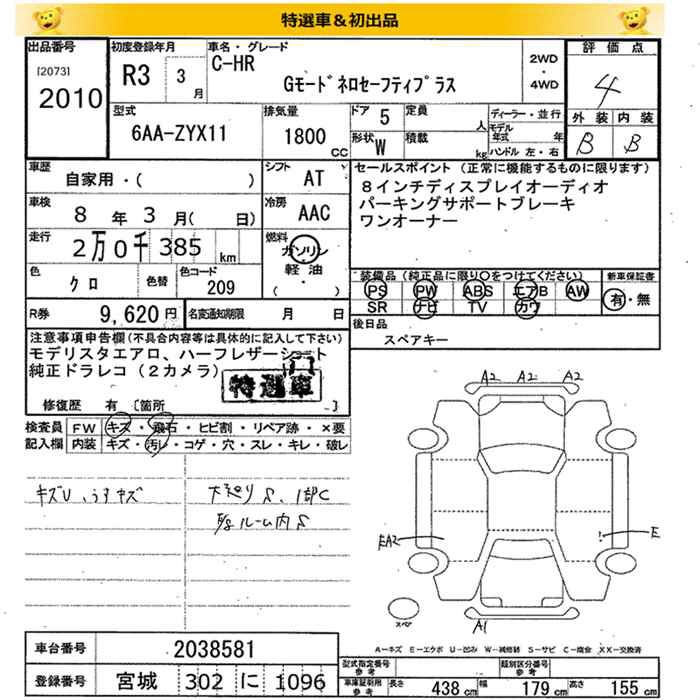 特選車＆初出品
出品番号
[2073]
2010
初度登録年月
R3 3月
車名・グレード
C-HR
Gモードネロセーフティプラス
2WD・4WD
評価点
4
外装 内装
B B
型式
6AA-ZYX11
排気量
1800cc
ドア 5
形状 W
定員 人
積載 kg
ディーラー・並行
モデル年式 年
ハンドル 左・右
車歴
自家用・( )
シフト AT
車検
8年3月(日)
冷房 AAC
走行
2万0千385km
燃料
ガソリン
軽油・
( )
色
クロ
色替
色コード
209
R券 9,620円
名変通知期限 月 日
セールスポイント (正常に機能するものに限ります)
8インチディスプレイオーディオ
パーキングサポートブレーキ
ワンオーナー
装備品(純正品に限り○をつけてください)
PS PW ABS エアB AW
SR ナビ TV カワ
新車保証書
有・無
後日品
スペアキー
注意事項申告欄(不具合内容等は具体的に記入して下さい)
モデリスタエアロ、ハーフレザーシート
純正ドラレコ(2カメラ)
特選車
修復歴 有 [箇所 ]
検査員記入欄
FW キズ・飛石・ヒビ割・リペア跡・×要
内装 キズ・汚レ・コゲ・穴・スレ・キレ・破レ
キズU、うすキズ
下廻りS、1部C
ルーム内S
A2 A2 A2
EA2
E
A1
スペア
A－キズ E－エクボ U－凹ミ W－補修跡 S－サビ C－腐食 XX－交換済
車台番号 2038581
登録番号 宮城 302 に 1096
型式指定番号 参考
類別区分番号 参考
車庫証明用 参考
長さ 438cm 幅 179cm 高さ 155cm